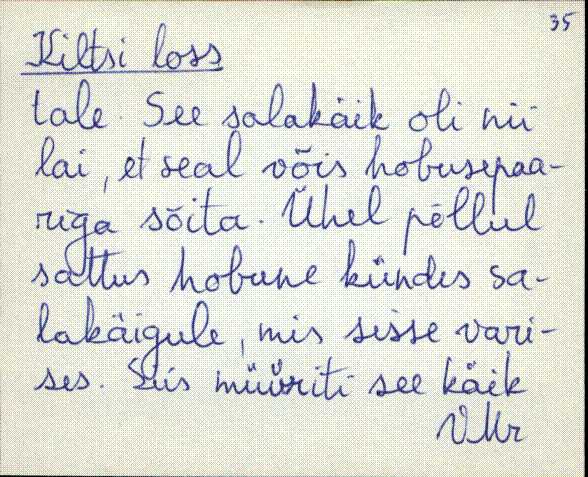 35
Kiltsi loss
tale. See salakäik oli nii
lai, et seal võis hobusepaa-
riga sõita. Ühel põllul
sattus hobune kündes sa-
lakäigule, mis sisse vari-
ses. Siis müüriti see käik
VMr